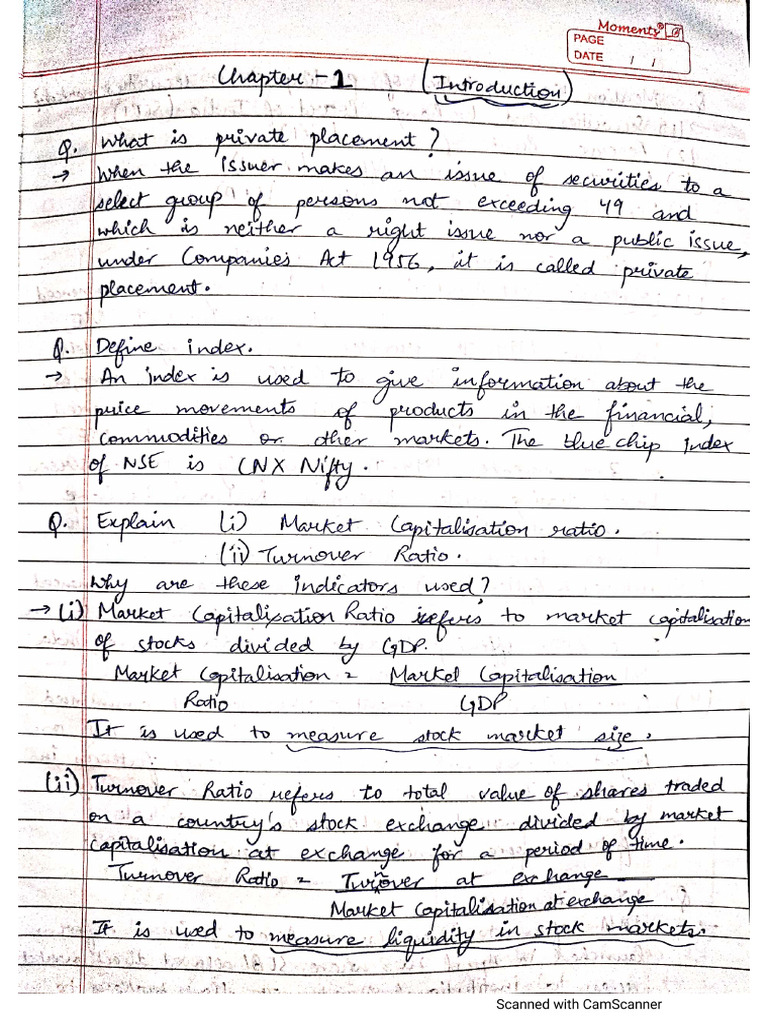 Moments
PAGE
DATE / /
Chapter - 1 (Introduction)
Q. What is private placement?
→ When the Issuer makes an issue of securities to a
select group of persons not exceeding 49 and
which is neither a right issue nor a public issue,
under Companies Act 1956, it is called private
placement.
Q. Define index.
→ An index is used to give information about the
price movements of products in the financial,
commodities or other markets. The blue chip Index
of NSE is CNX Nifty.
Q. Explain (i) Market Capitalisation ratio.
(ii) Turnover Ratio.
Why are these indicators used?
→ (i) Market Capitalisation Ratio refers to market capitalisation
of stocks divided by GDP.
Market Capitalisation = Market Capitalisation
Ratio GDP
It is used to measure stock market size.
(ii) Turnover Ratio refers to total value of shares traded
on a country's stock exchange divided by market
capitalisation at exchange for a period of time.
Turnover Ratio = Turnover at exchange
Market Capitalisation at exchange
It is used to measure liquidity in stock markets.
Scanned with CamScanner